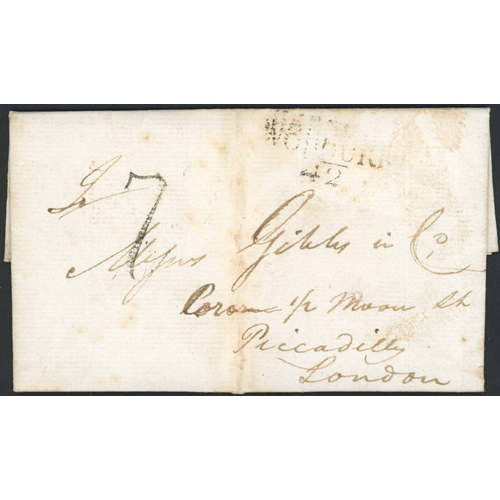 WOBURN
42
7
Messrs Gibbs & Co
Corner 1/2 Moon St
Piccadilly
London